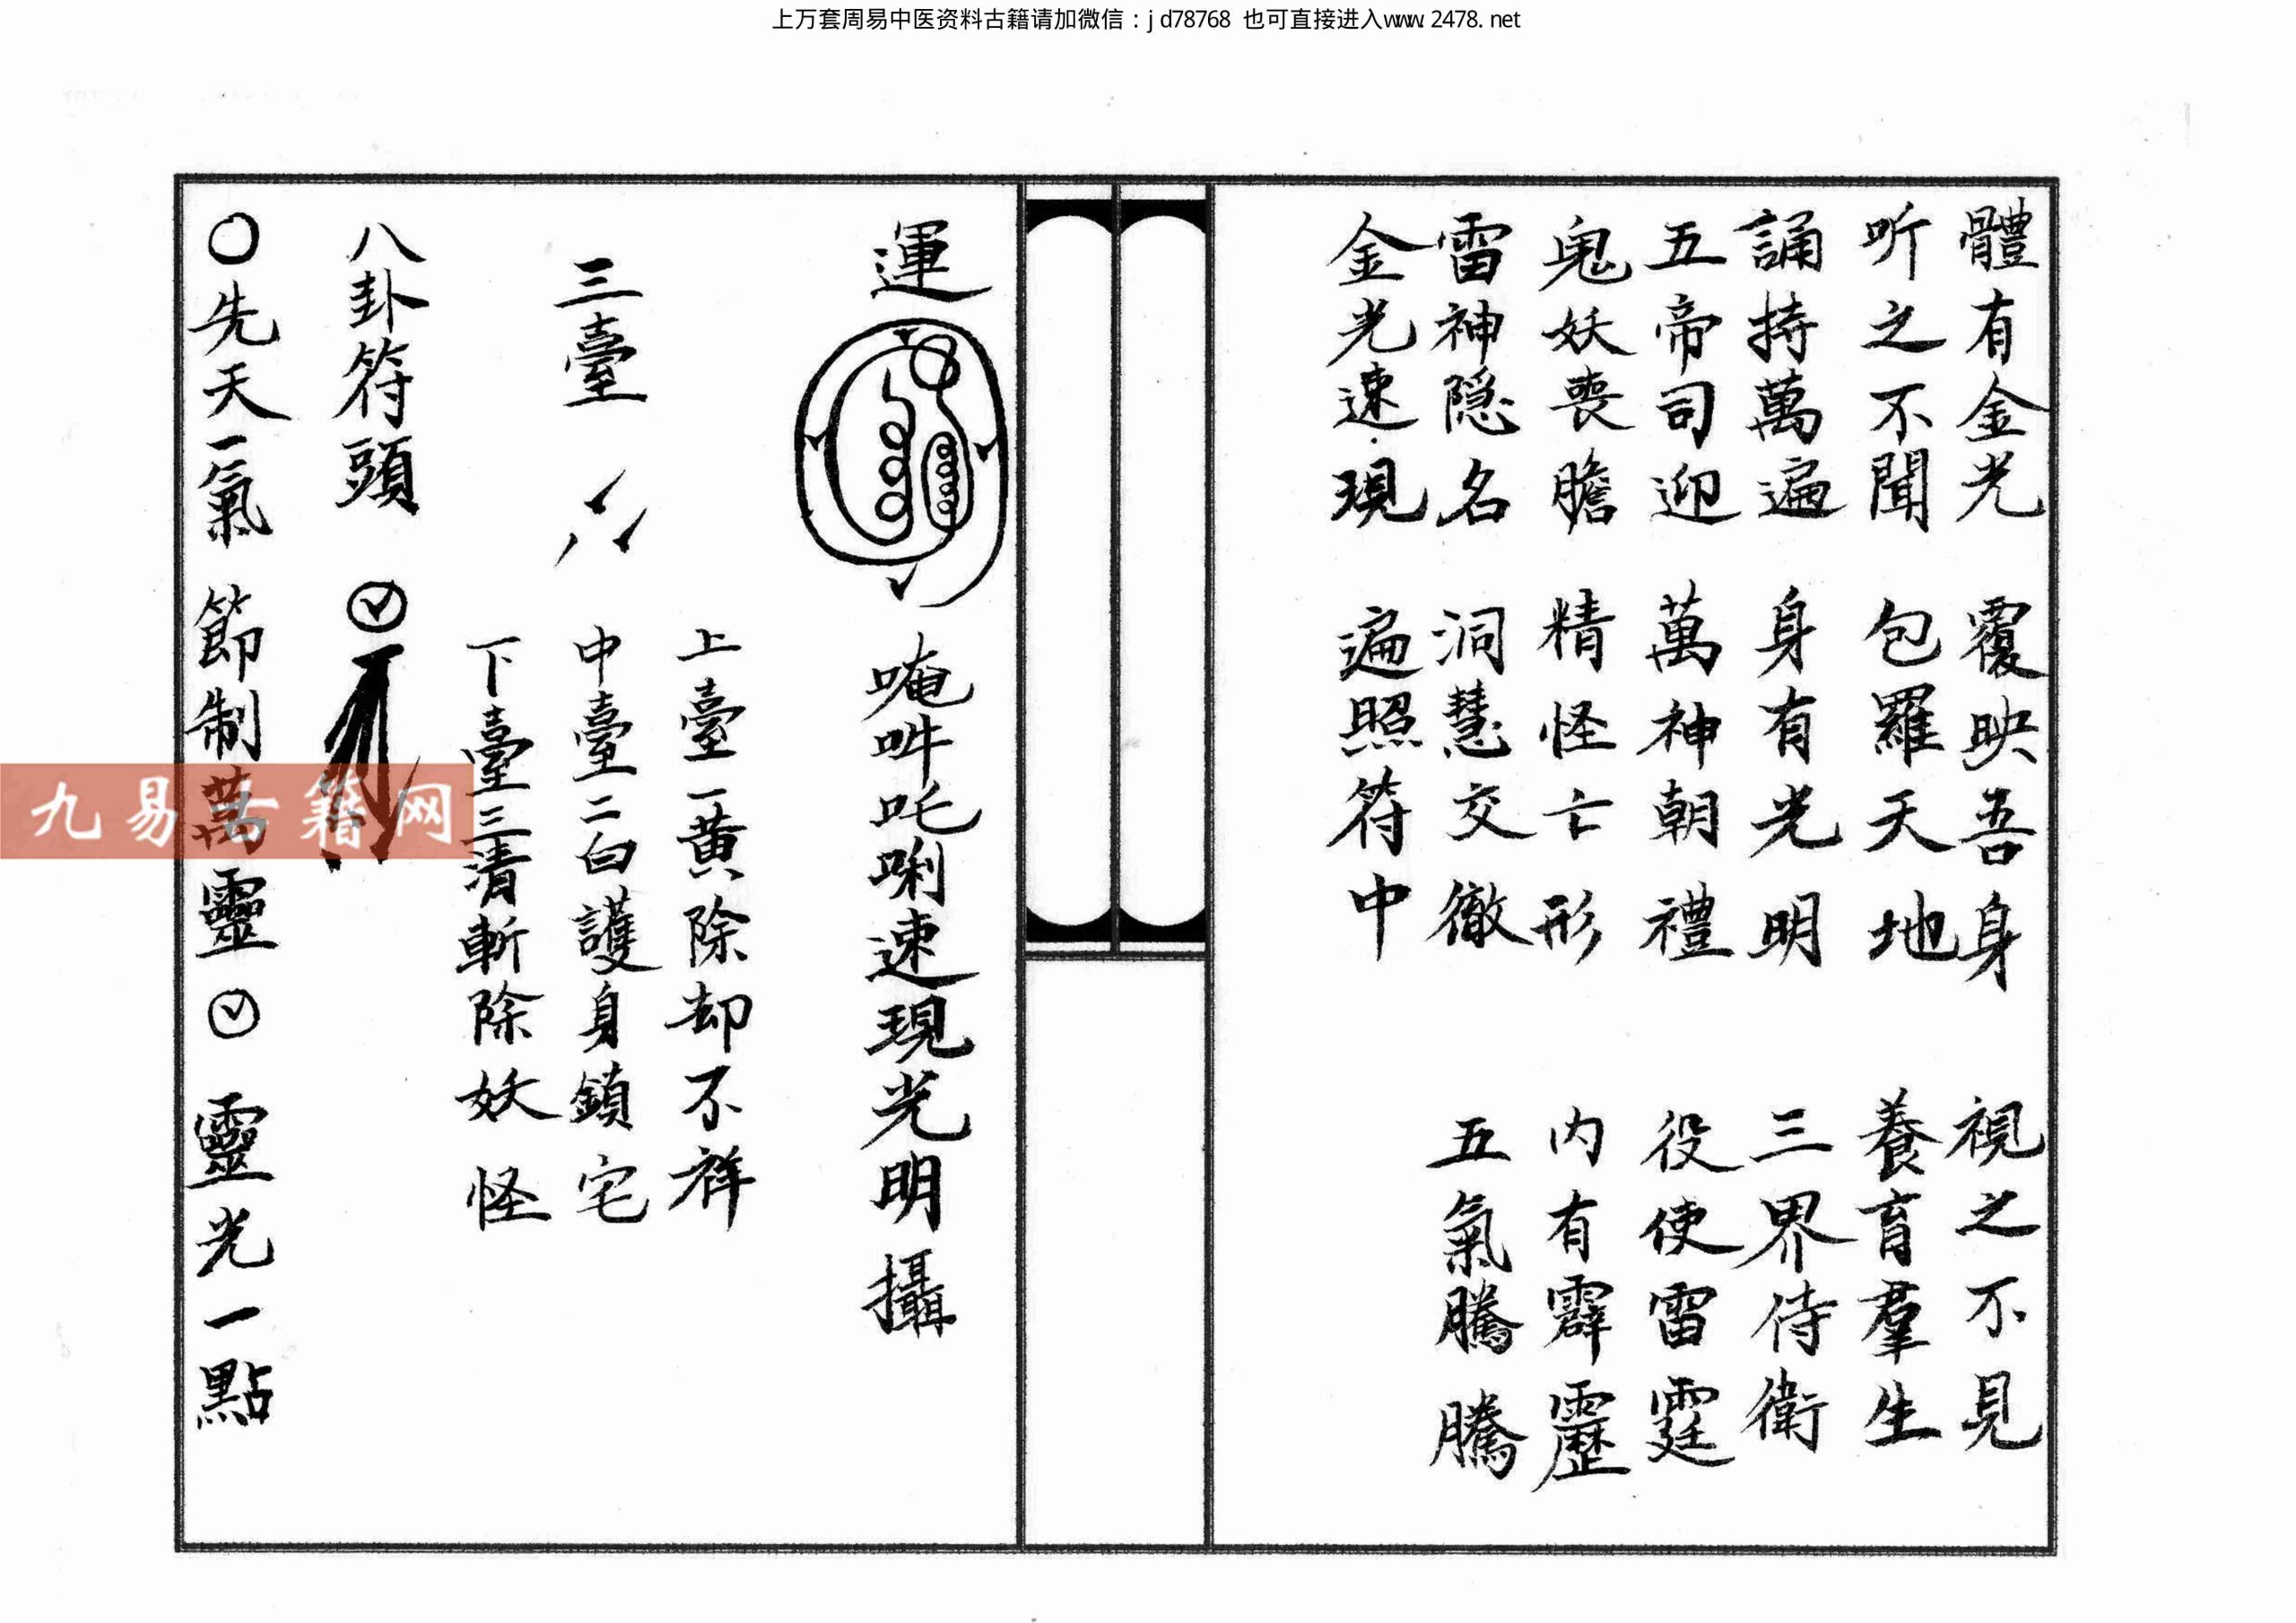 上万套周易中医资料古籍请加微信：jd78768 也可直接进入www.2478.net
體有金光 覆映吾身 視之不見
听之不聞 包羅天地 養育羣生
誦持萬遍 身有光明 三界侍衛
五帝司迎 萬神朝禮 役使雷霆
鬼妖喪膽 精怪亡形 内有霹靂
雷神隐名 洞慧交徹 五氣騰騰
金光速現 遍照符中
運 唵吽吒唎速現光明攝
三臺
上臺一黄除却不祥
中臺二白護身鎮宅
下臺三清斬除妖怪
八卦符頭
○先天一氣 節制萬靈 靈光一點
九易古籍网